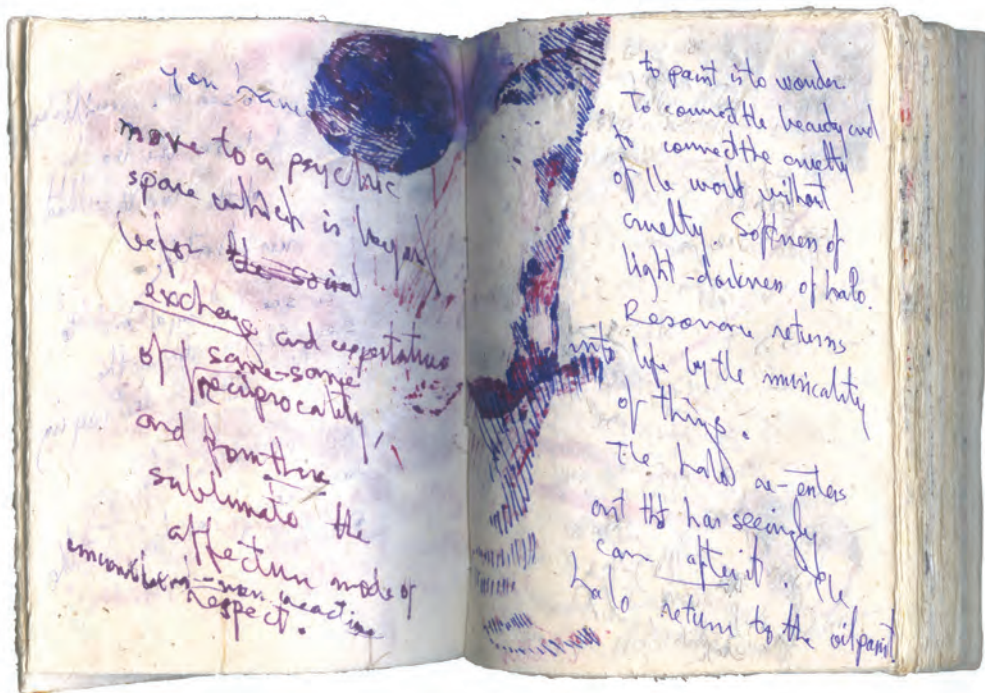 you
move to a psychic
space which is beyon
befor the social
exchange and expectations
of same-same
reciprocality,
and from there
sublimate the
affection mode of
non reactive
respect.
to paint is to wonder.
To connect the beauty and
to connect the cruelty
of the world without
cruelty. Softness of
light-darkness of halo.
Resonance returns
into life by the musicality
of things.
The halo re-enters
art tht has seeingly
cam after it. The
halo return to the oilpaint